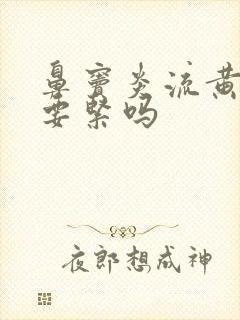 鼻窦炎流黄
要紧吗
夜郎想成神